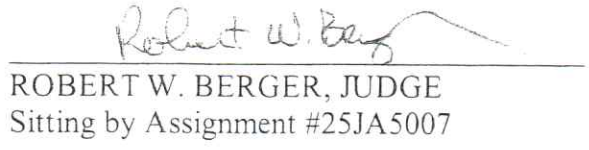 Robert W. Berger
ROBERT W. BERGER, JUDGE
Sitting by Assignment #25JA5007